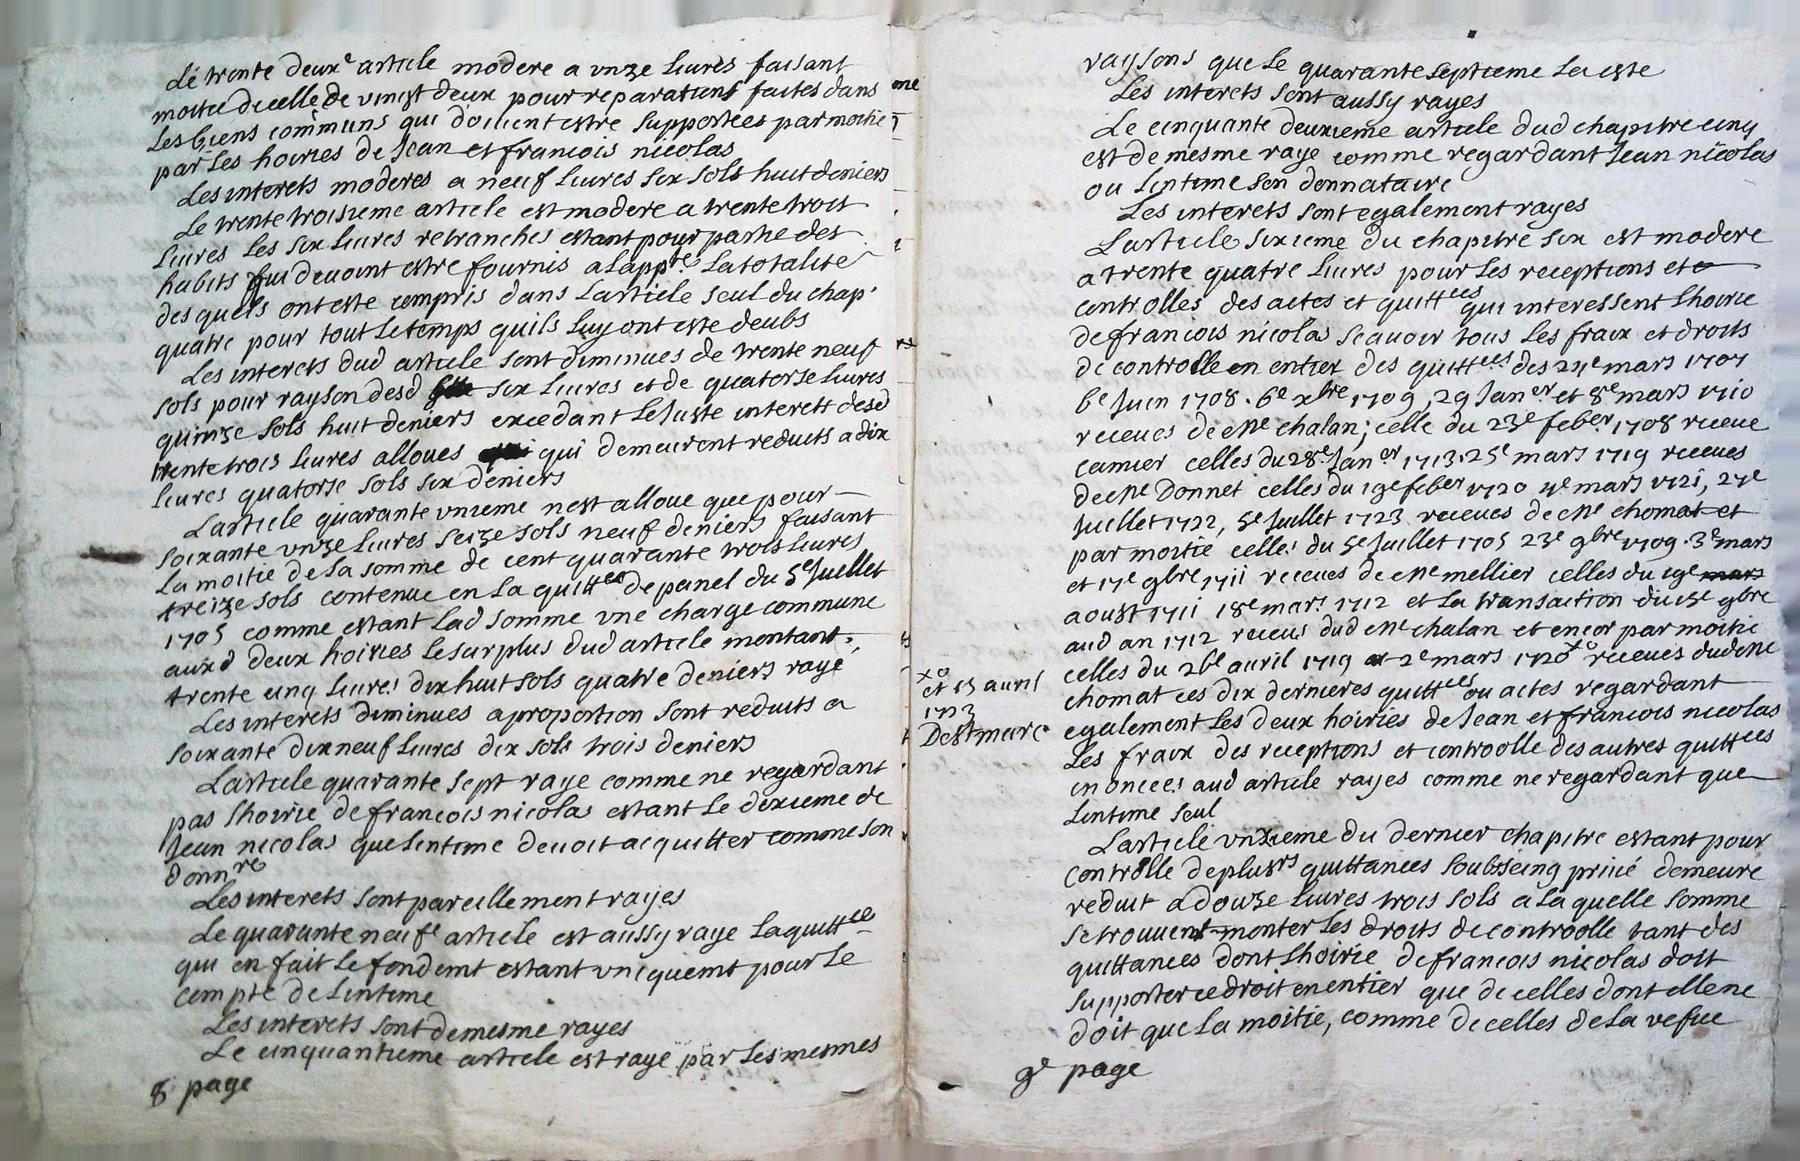 Le trente deuxe article modere a unze livres faisant
moitie dicelle de vingt deux pour reparations faites dans
les biens communs qui doivent estre supportees par moitie
par les hoiries de Jean et francois nicolas
Les interets moderes a neuf livres six sols huit deniers
Le trente troisieme article est modere a trente trois
livres les six livres retranches estant pour partie des
habits qui devoint estre fournis a lappte la totalite
des quels ont este compris dans larticle seul du chap.
quatre pour tout le temps quils luy ont este deubs
Les interets dud article sont diminues de trente neuf
sols pour rayson desd six livres et de quatorse livres
quinze sols huit deniers excedant le juste interett desd
trente trois livres alloues qui demeurent reduits a dix
livres quatorse sols six deniers
Larticle quarante unieme nest alloue que pour
soixante unze livres seize sols neuf deniers faisant
la moitie de la somme de cent quarante trois livres
treize sols contenue en la quittce de panel du 5e Juillet
1705 comme estant lad somme une charge commune
auxd deux hoiries le surplus dud article montant
trente cinq livres dix huit sols quatre deniers raye
Les interets diminues a proportion sont reduits a
soixante dix neuf livres dix sols trois deniers
Larticle quarante sept raye comme ne regardant
pas lhoirie de francois nicolas estant le dixieme de
Jean nicolas que lintime devoit acquitter comme son
donnre
Les interets sont pareillement rayes
Le quarante neufe article est aussy raye la quittce
qui en fait le fondemt estant uniquemt pour le
compte de lintime
Les interets sont de mesme rayes
Le cinquantieme article est raye par les mesmes
8 page
raysons que le quarante septieme la este
Les interets sont aussy rayes
Le cinquante deuxieme article dud chapitre cinq
est de mesme raye comme regardant Jean nicolas
ou lintime son donnataire
Les interets sont egalement rayes
Larticle sixieme du chapitre six est modere
a trente quatre livres pour les receptions et
controlles des actes et quittces qui interessent lhoirie
de francois nicolas scavoir tous les fraix et droits
de controlle en entier des quittces des 24e mars 1707
6e Juin 1708. 6e xbre 1709, 29 Janer et 8e mars 1710
receues de Me chalan; celle du 23e feber 1708 receue
camier celles du 28e Janer 1713. 25e mars 1719 receues
de Me Donnet celles du 19e feber 1720 4e mars 1721, 27e
Juillet 1722, 5e Juillet 1723 receues de Me chomat et
par moitie celles du 5e Juillet 1705 23e 9bre 1709. 3e mars
et 17e 9bre 1711 receues de Me mellier celles du 19e mars
aoust 1711 18e mars 1712 et la transaction du 15e 9bre
aud an 1712 receus dud Me chalan et encor par moitie
celles du 26e avril 1719 et 2e mars 1720 xo receues dud Me
xo
et 15 avril
1723
Destmere
chomat ces dix dernieres quittces ou actes regardant
egalement les deux hoiries de Jean et francois nicolas
Les fraix des receptions et controolle des autres quittces
enoncees aud article rayes comme ne regardant que
lintime seul
Larticle unzieme du dernier chapitre estant pour
controlle de plusrs quittances soubseing privé demeure
reduit a douze livres trois sols a la quelle somme
se trouvent monter les droits de controolle tant des
quittances dont lhoirie de francois nicolas doit
supporter ce droit en entier que de celles dont elle ne
doit que la moitie, comme de celles de la vefue
9e page